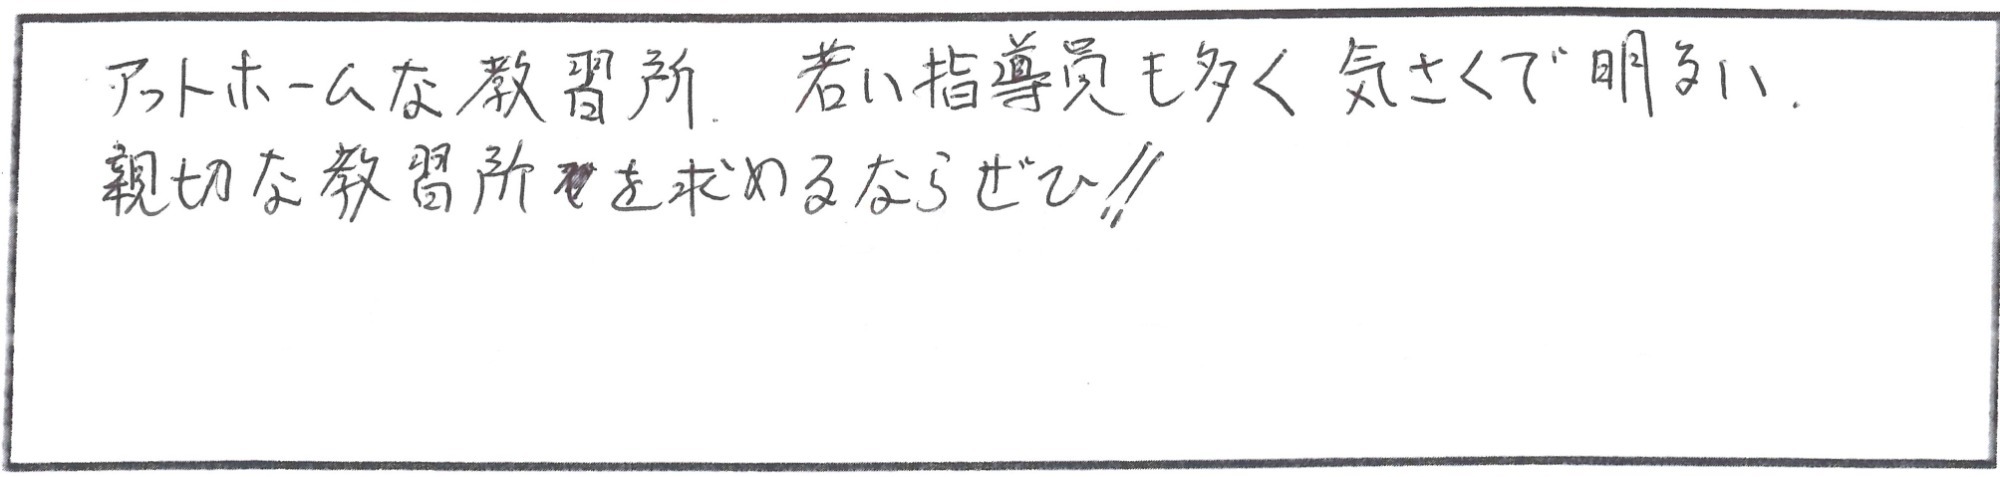 アットホームな教習所. 若い指導員も多く 気さくで明るい.
親切な教習所を求めるならぜひ!!